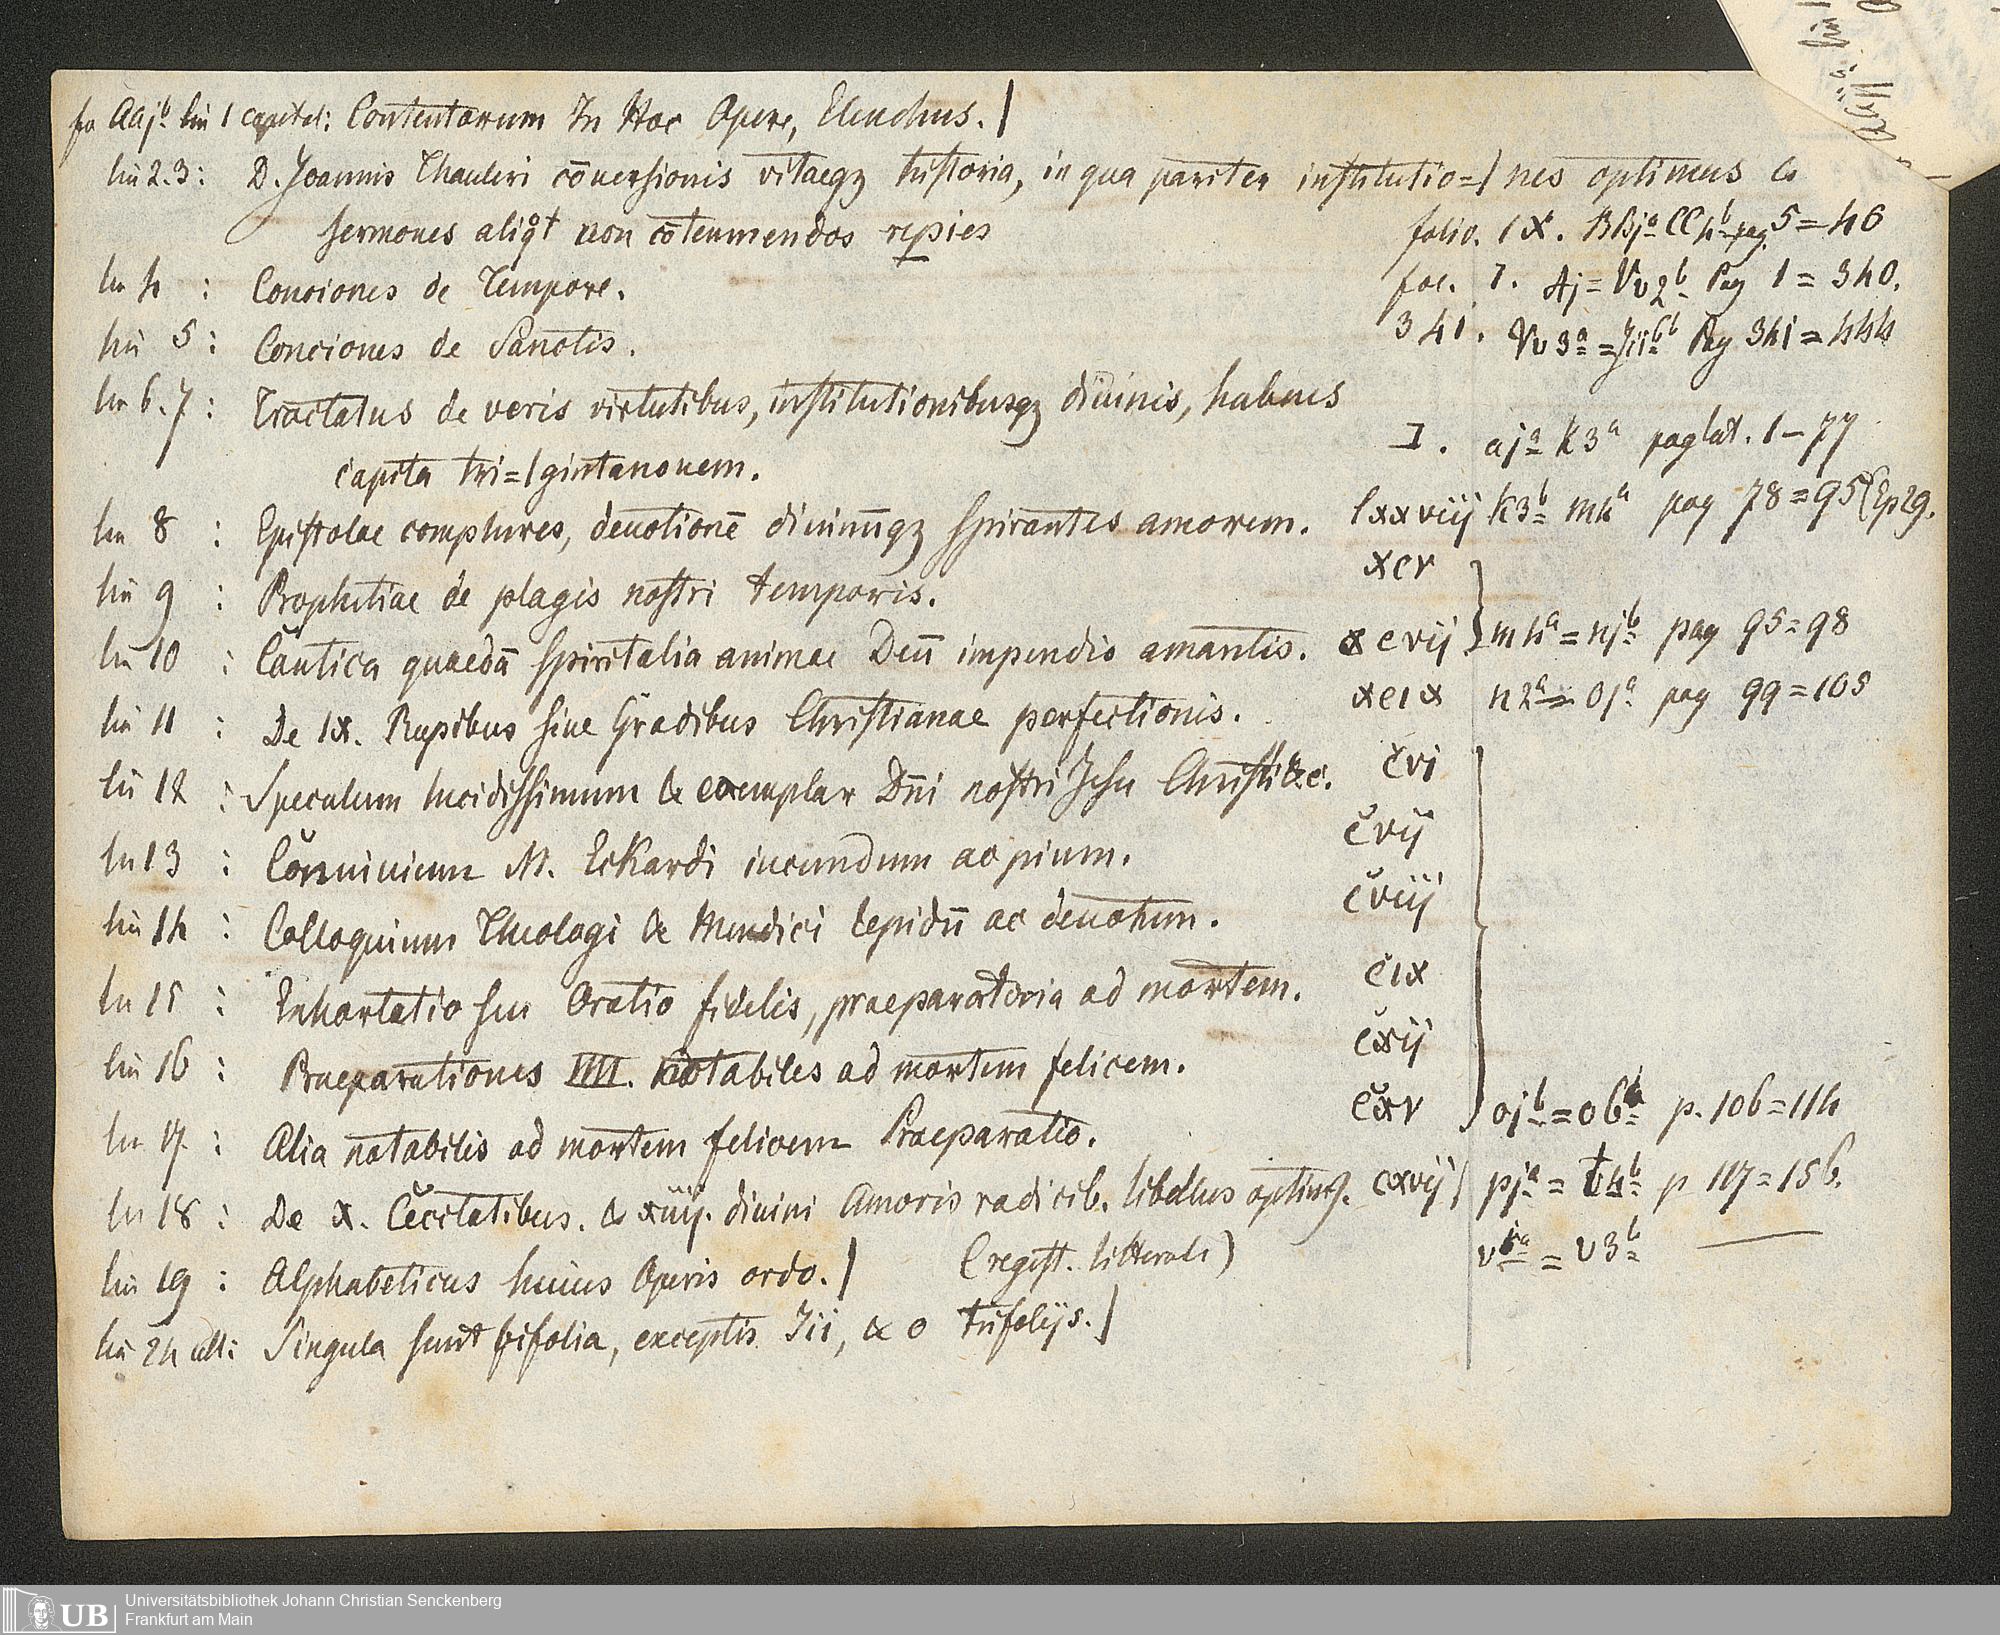 fo Aaj b lin 1 capital: Contentorum In Hoc Opere, Elenchus. |
lin 2.3: D. Joannis Thauleri cōuersionis vitaeqz historia, in qua pariter institutio=| nes optimas &
sermones aliqot non cōtemnendos repies folio. IX. BBj a CC4 b pag 5=46
lin 4 : Conciones de Tempore. fol. I. Aj=Vv2 b Pag 1=340.
lin 5 : Conciones de Sanctis. 341. Vv 3 a = Iii6 b Pag 341=444
lin 6.7 : Tractatus de veris virtutibus, institutionibusqz diuinis, habens
capita tri=|gintanouem. I. aj a k3 a pag lat. 1-77
lin 8 : Epistolae complures, deuotionē diuinūqz spirantes amorem. lxxviij k3 b m4 a pag 78=95 (Ep 29.
lin 9 : Prophetiae de plagis nostri temporis. xcv
lin 10 : Cantica quaedā spiritalia animae Deū impendio amantis. xcvij } m4 a = nj b pag 95=98
lin 11 : De IX. Rupibus siue Gradibus Christianae perfectionis. xcix n2 a = oj a pag 99=105
lin 12 : Speculum lucidissimum & exemplar Dn̄i nostri Jesu Christi &c. cvj
lin 13 : Conuiuium M. Eckardi iucundum ac pium. cvij
lin 14 : Colloquium Theologi & Mendici lepidū ac deuotum. cviij
lin 15 : Exhortatio seu Oratio fidelis, praeparatoria ad mortem. cix
lin 16 : Praeparationes IIII. notabiles ad mortem felicem. cxij
lin 17 : Alia notabilis ad mortem felicem Praeparatio. cxv } oj b = o6 b p. 106=114
lin 18 : De X. Cecitatibus. & xiiij. diuini Amoris radicib. libellus optimus. cxvij | pj a = t4 b p 117=156.
lin 19 : Alphabeticus huius Operis ordo. | (regist. litterale) v a = v3 b
lin 24 ult: Singula sunt trifolia, exceptis Iii, & o trifolijs. |
Universitätsbibliothek Johann Christian Senckenberg
UB Frankfurt am Main